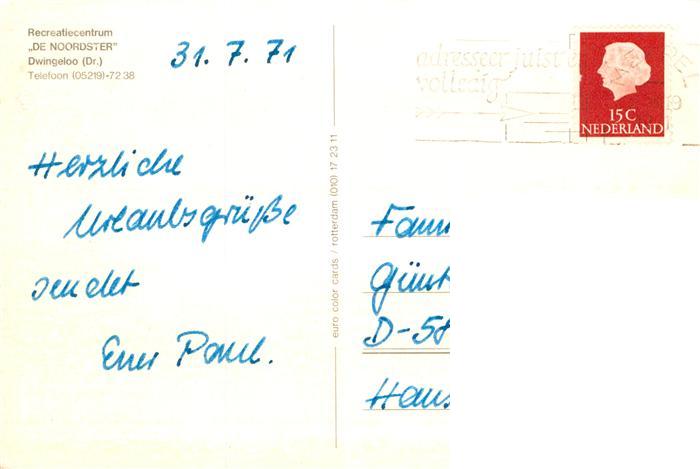 Recreatiecentrum
„DE NOORDSTER"
Dwingeloo (Dr.)
Telefoon (05219)-7238
31. 7. 71
Herzliche
Urlaubsgrüße
sendet
Euer Paul.
euro color cards / rotterdam (010) 17 23 11
adresseer juist e
volledig
15 C
NEDERLAND
Fam
Günt
D-58
Haus